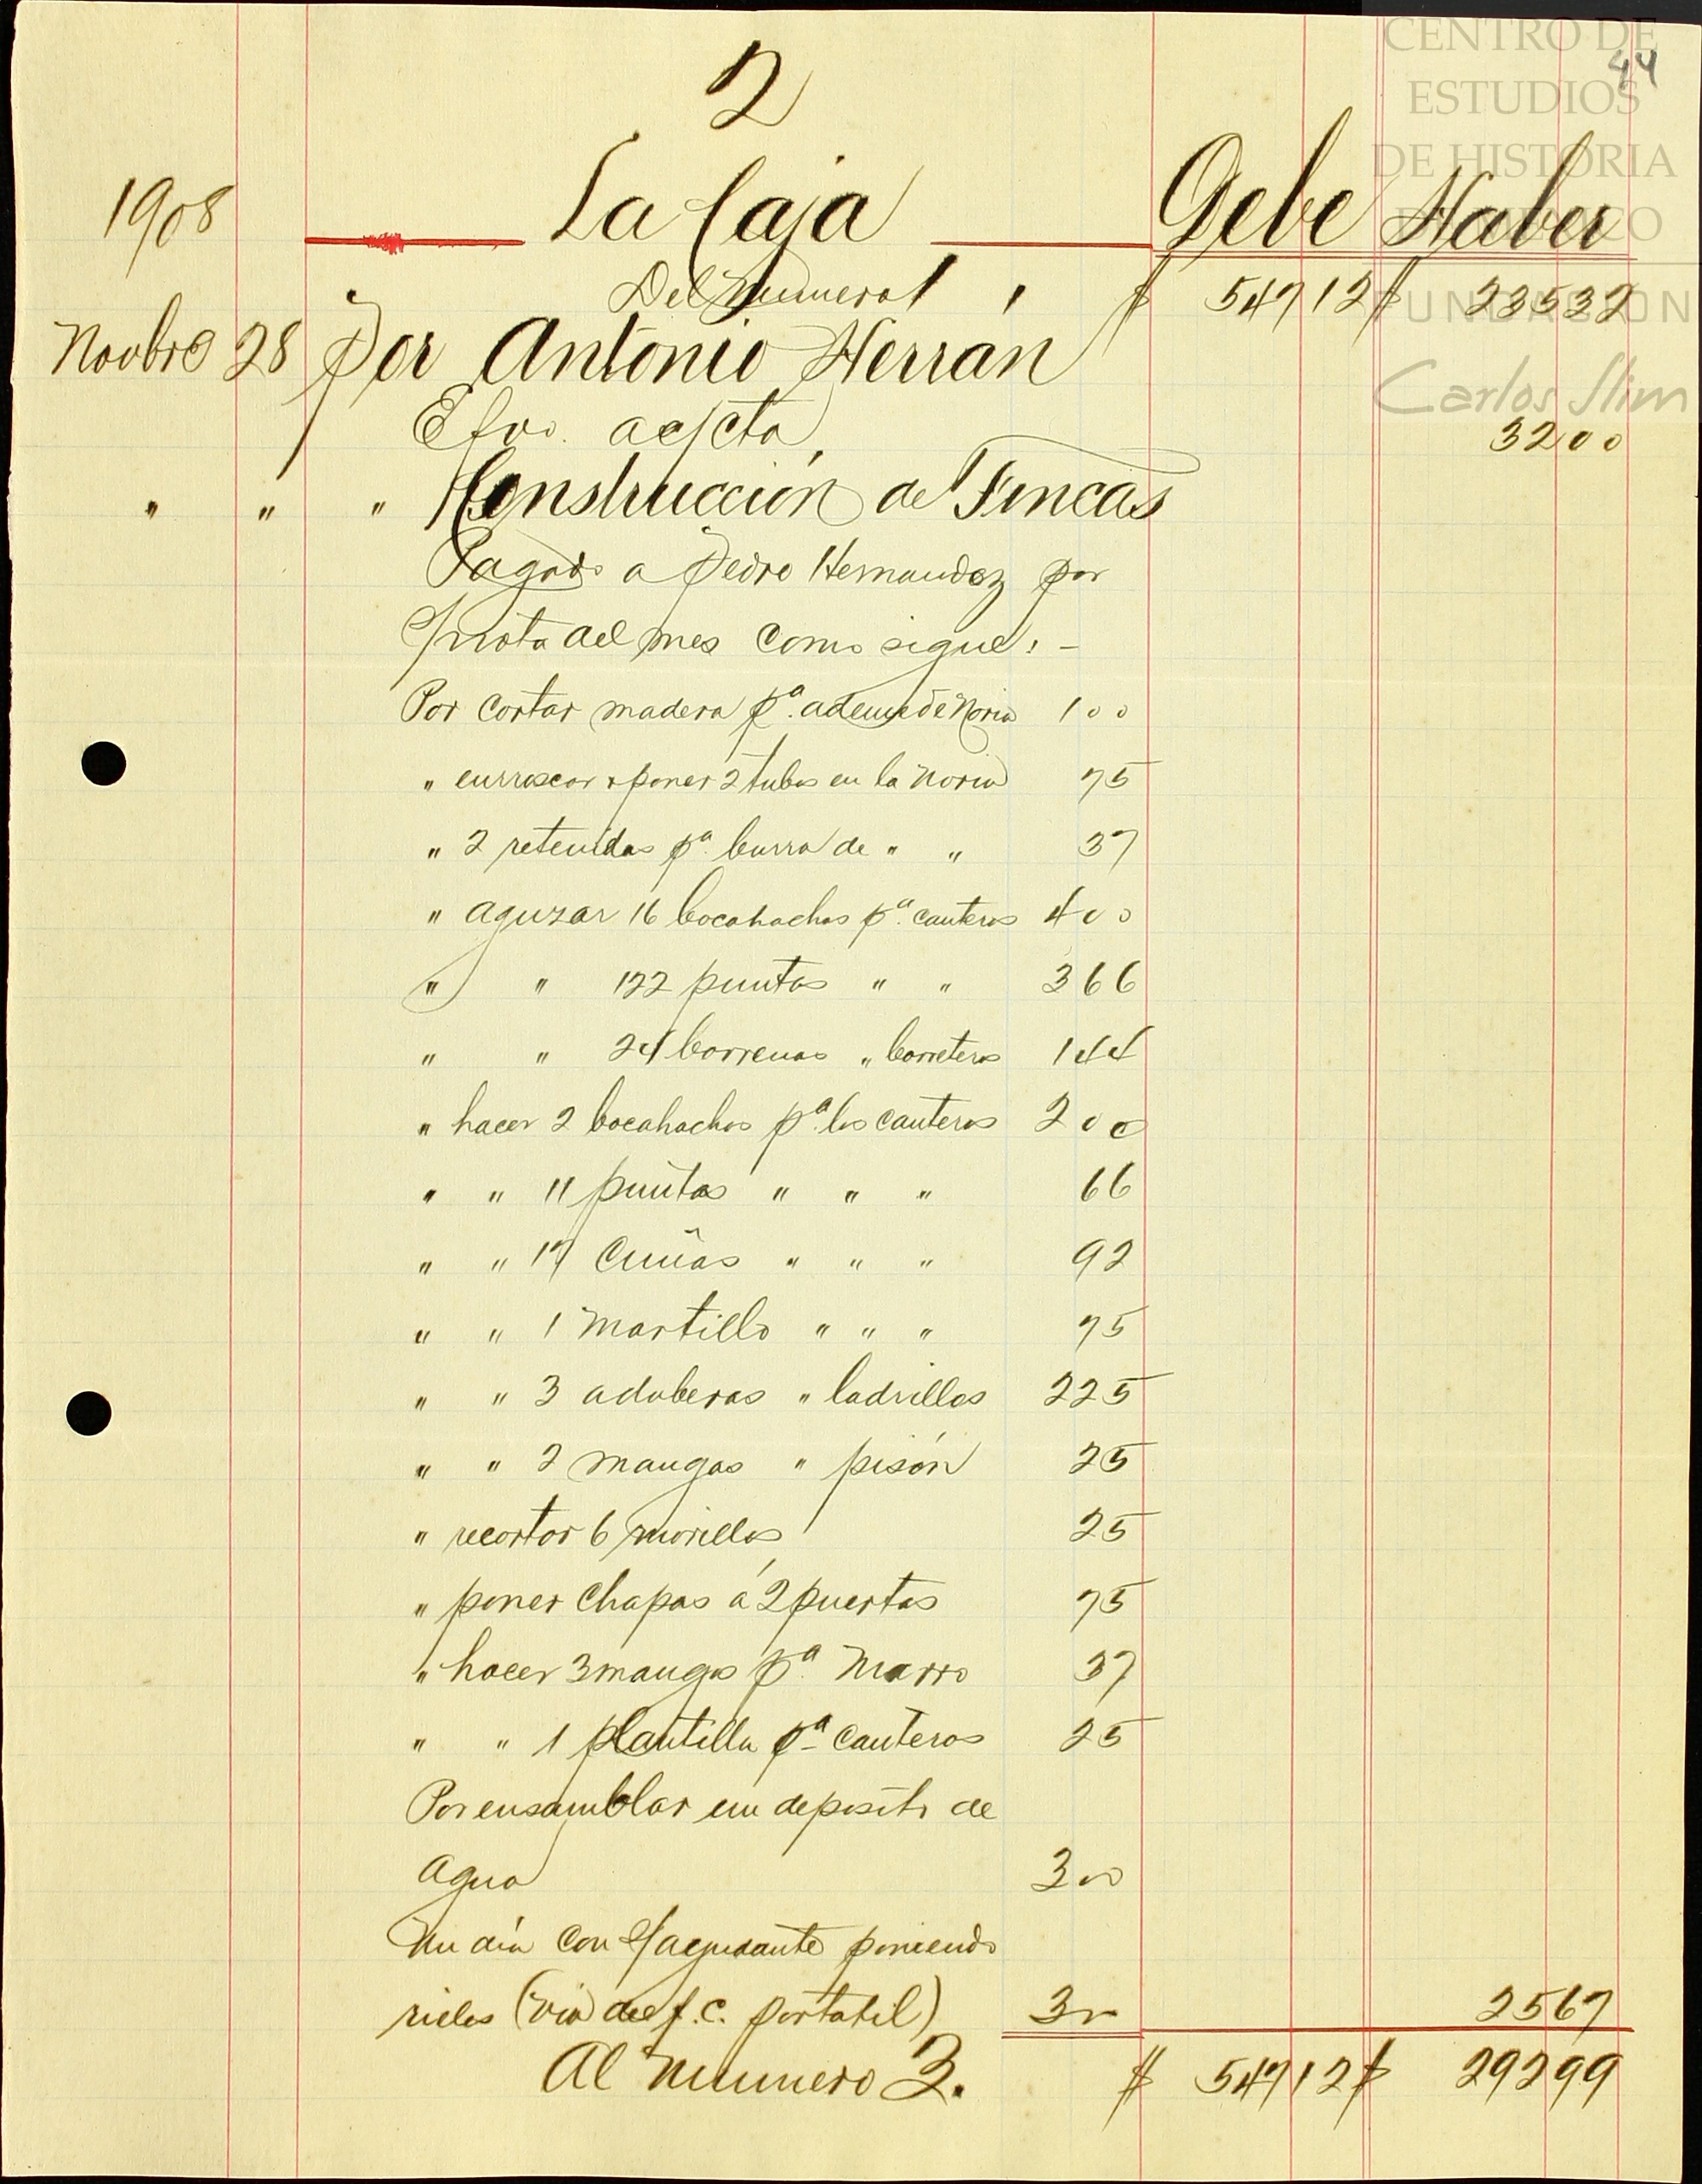 CENTRO DE
ESTUDIOS
DE HISTORIA
FUNDACIÓN
Carlos Slim
44
2
1908 La Caja Debe Haber
Del Numero 1 $ 547 12 $ 235 32
Novbre 28 Por Antonio Herrán
Efvo. a c/cta 32 00
" " " Construcción de Fincas
Pagado a Pedro Hernandez por
s/nota del mes como sigue: -
Por cortar madera pª. ademe de Noria 1 00
" enroscar y poner 2 tubos en la Noria 75
" 2 retenidas pª. burra de " " 37
" aguzar 16 bocahachas pª. canteros 4 00
" " 122 puntas " " 3 66
" " 24 barrenas " barreteros 1 44
" hacer 2 bocahachas pª. los canteros 2 00
" " 11 puntas " " " 66
" " 17 Cuñas " " " 92
" " 1 Martillo " " " 75
" " 3 adoberas " ladrillos 2 25
" " 2 mangos " pisón 25
" recortar 6 morillos 25
" poner Chapas á 2 puertas 75
" hacer 3 mangos pª. Marro 37
" " 1 plantilla pª canteros 25
Por ensamblar un deposito de
agua 3 00
Un día con s/ayudante poniendo
rieles (via del f.c. portatil) 3 00 25 67
Al Numero 3. $ 547 12 $ 292 99